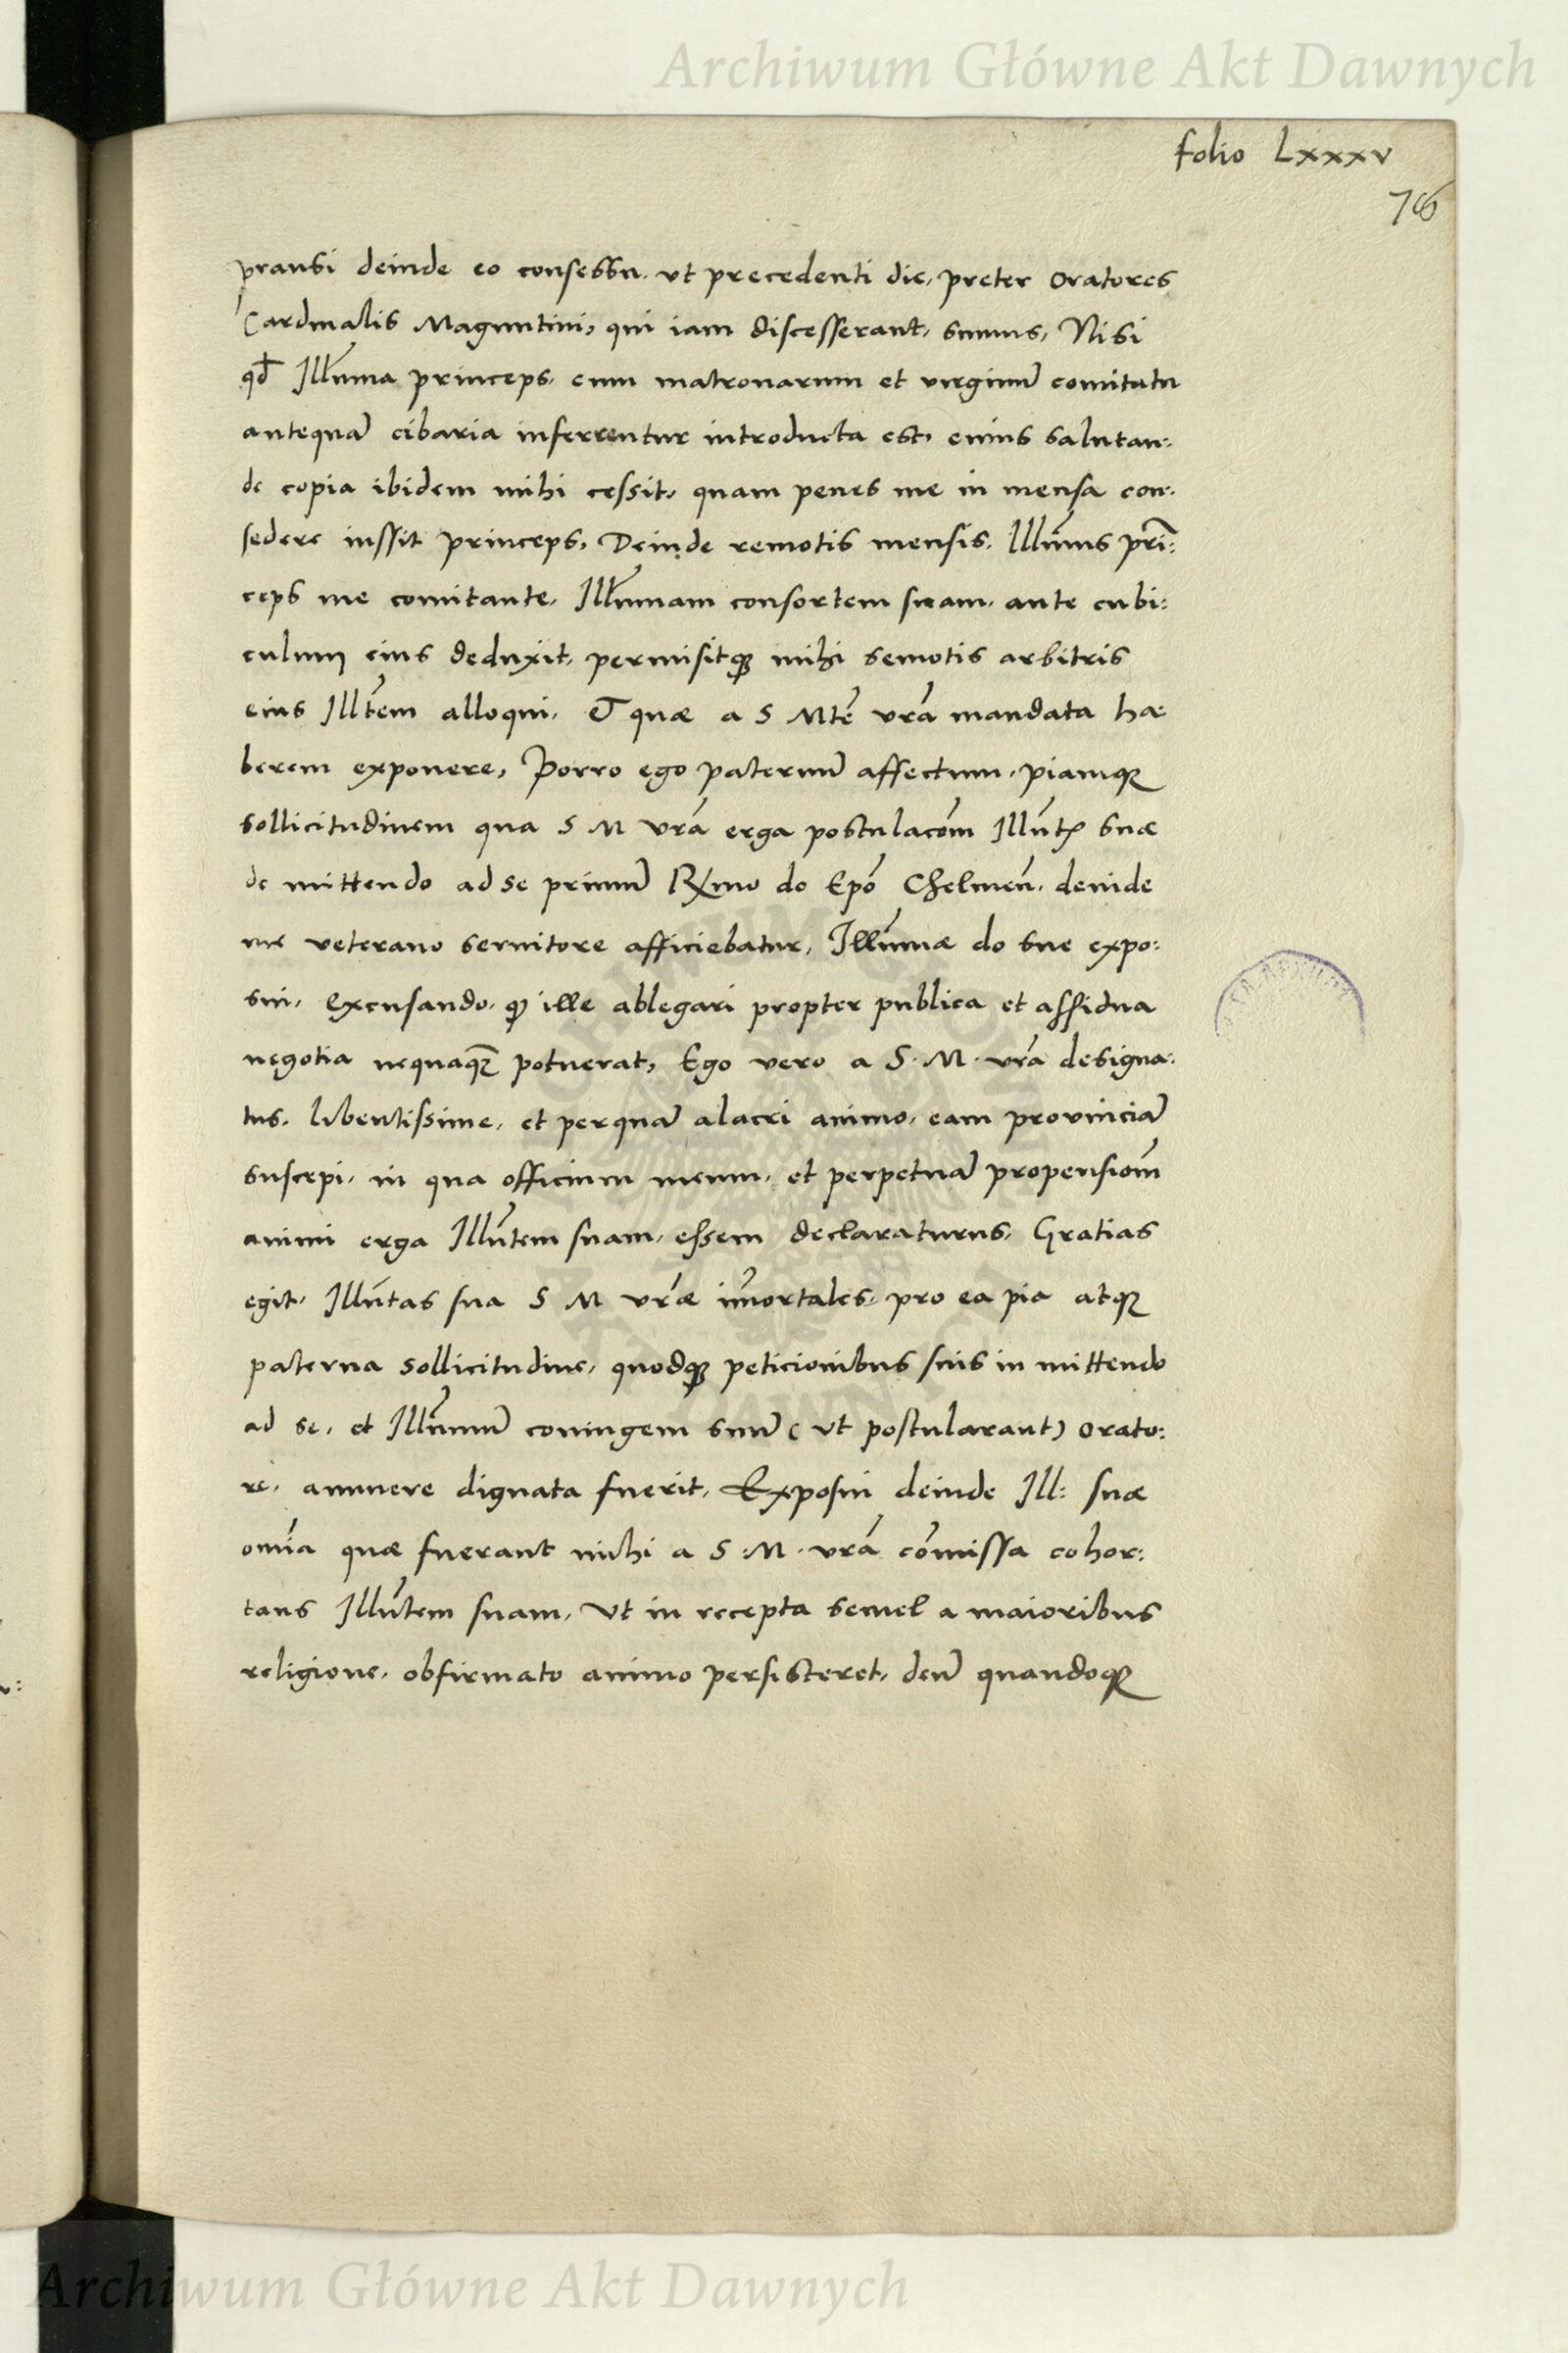 Archiwum Główne Akt Dawnych
folio Lxxxv
76
pransi deinde eo consessu. vt precedenti die, preter oratores
Cardinalis Maguntini, qui iam discesserant, sumus, Nisi
qđ Illũma princeps, cum matronarum et virginũ comitatu
antequã cibaria inferrentur introducta est, cuius salutan:
de copia ibidem mihi cessit, quam penes me in mensa con:
sedere iussit princeps, Deinde remotis mensis, Illũmus prĩ:
ceps me comitante, Illũmam consortem suam, ante cubi:
culum eius deduxit, permisitqꝫ mihi semotis arbitris
eius Illtẽm alloqui, Et quæ a S Mtẽ vrã mandata hæ
berem exponere, Porro ego paternũ affectum, piamqꝫ
sollicitudinem qua S M vrã erga postulacõm Illũtꝭ suæ
de mittendo ad se primũ Rxmo do Epõ Chelmeñ, deinde
me veterano seruitore afficiebatur, Illũmæ do sue expo:
sui, Excusando, ꝙ ille ablegari propter publica et assidua
negotia nequaqꝫ potuerat, Ego vero a S. M. vrã designa:
tus, libentissime, et perquã alacri animo, eam prouinciã
suscepi, in qua officium meum, et perpetuã propensiõm
animi erga Illũtem suam, essem declaraturus, Gratias
egit, Illũtas sua S M vrãe im̃ortales, pro ea pia atqꝫ
paterna sollicitudine, quodqꝫ peticionibus suis in mittendo
ad se, et Illũmũ coniugem suũ (vt postularant) orato:
re, annuere dignata fuerit, Exposui deinde Ill: suæ
omĩa quæ fuerant mihi a S: M. vrã cõmissa cohor:
tans Illũtem suam, Vt in recepta semel a maioribus
religione, obfirmato animo persisteret, deũ quandoqꝫ
Archiwum Główne Akt Dawnych